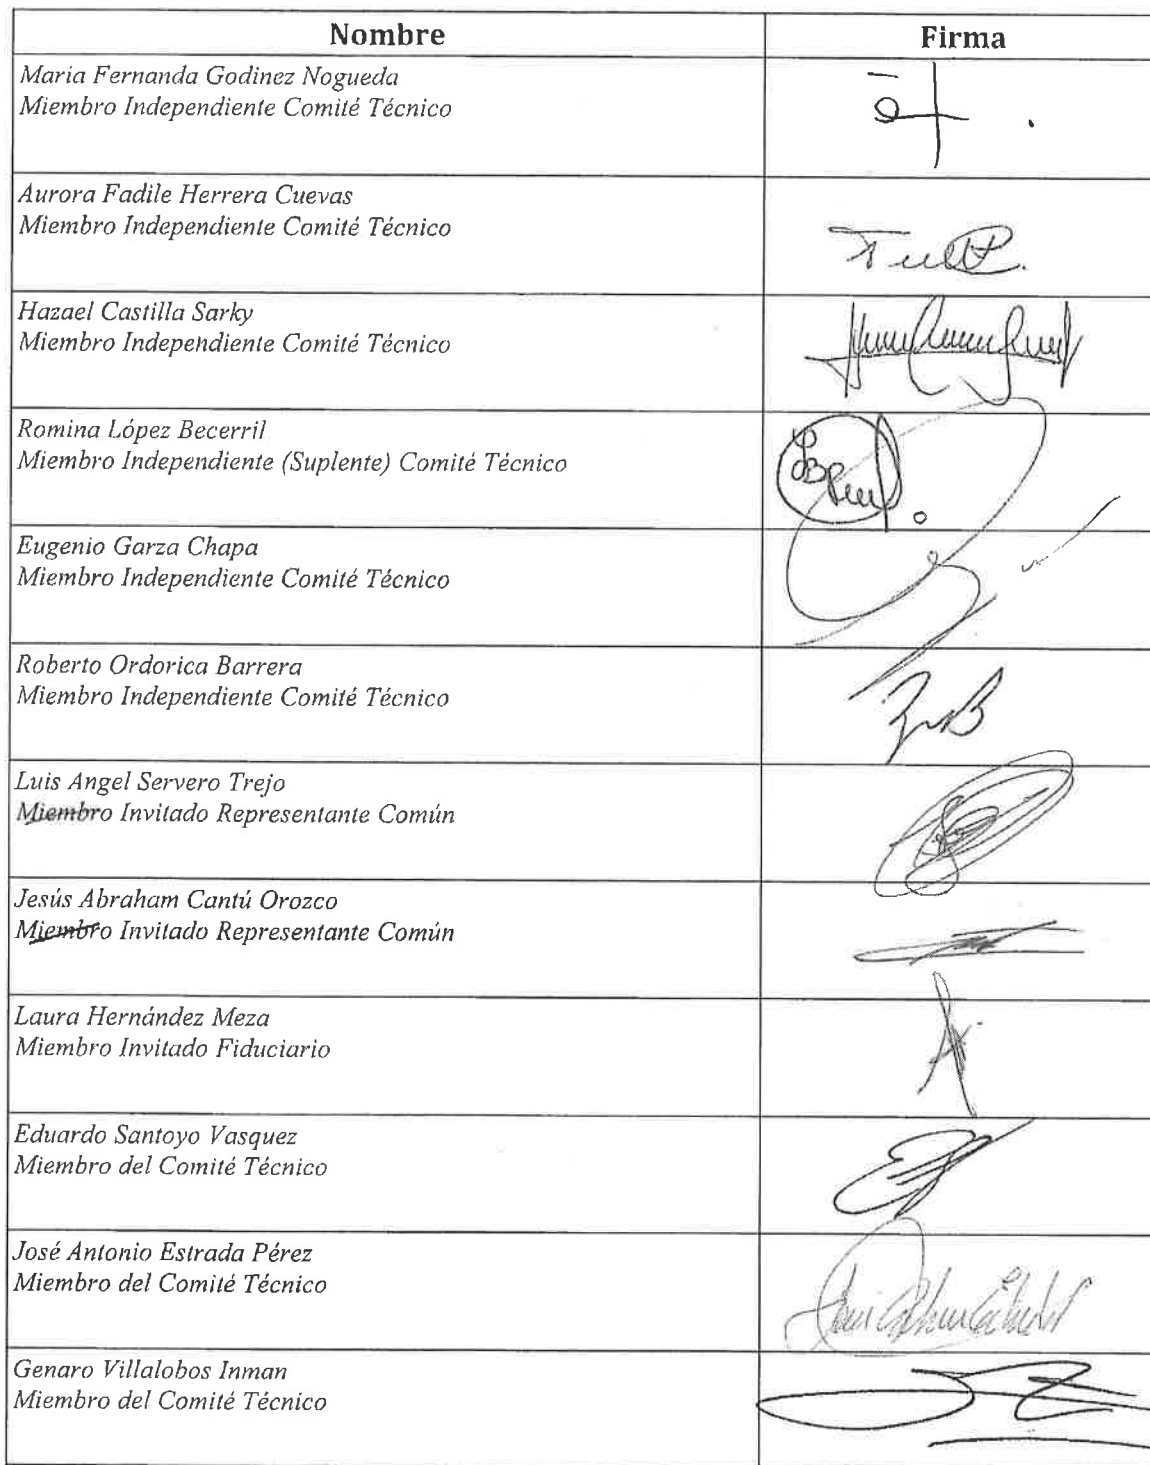 Nombre Firma
Maria Fernanda Godinez Nogueda
Miembro Independiente Comité Técnico
Aurora Fadile Herrera Cuevas
Miembro Independiente Comité Técnico
Hazael Castilla Sarky
Miembro Independiente Comité Técnico
Romina López Becerril
Miembro Independiente (Suplente) Comité Técnico
Eugenio Garza Chapa
Miembro Independiente Comité Técnico
Roberto Ordorica Barrera
Miembro Independiente Comité Técnico
Luis Angel Servero Trejo
Miembro Invitado Representante Común
Jesús Abraham Cantú Orozco
Miembro Invitado Representante Común
Laura Hernández Meza
Miembro Invitado Fiduciario
Eduardo Santoyo Vasquez
Miembro del Comité Técnico
José Antonio Estrada Pérez
Miembro del Comité Técnico
Genaro Villalobos Inman
Miembro del Comité Técnico